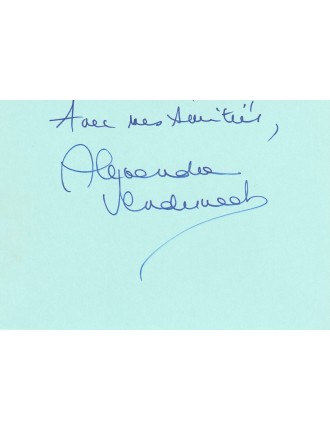 Avec mes Amitiés,
Alexandra